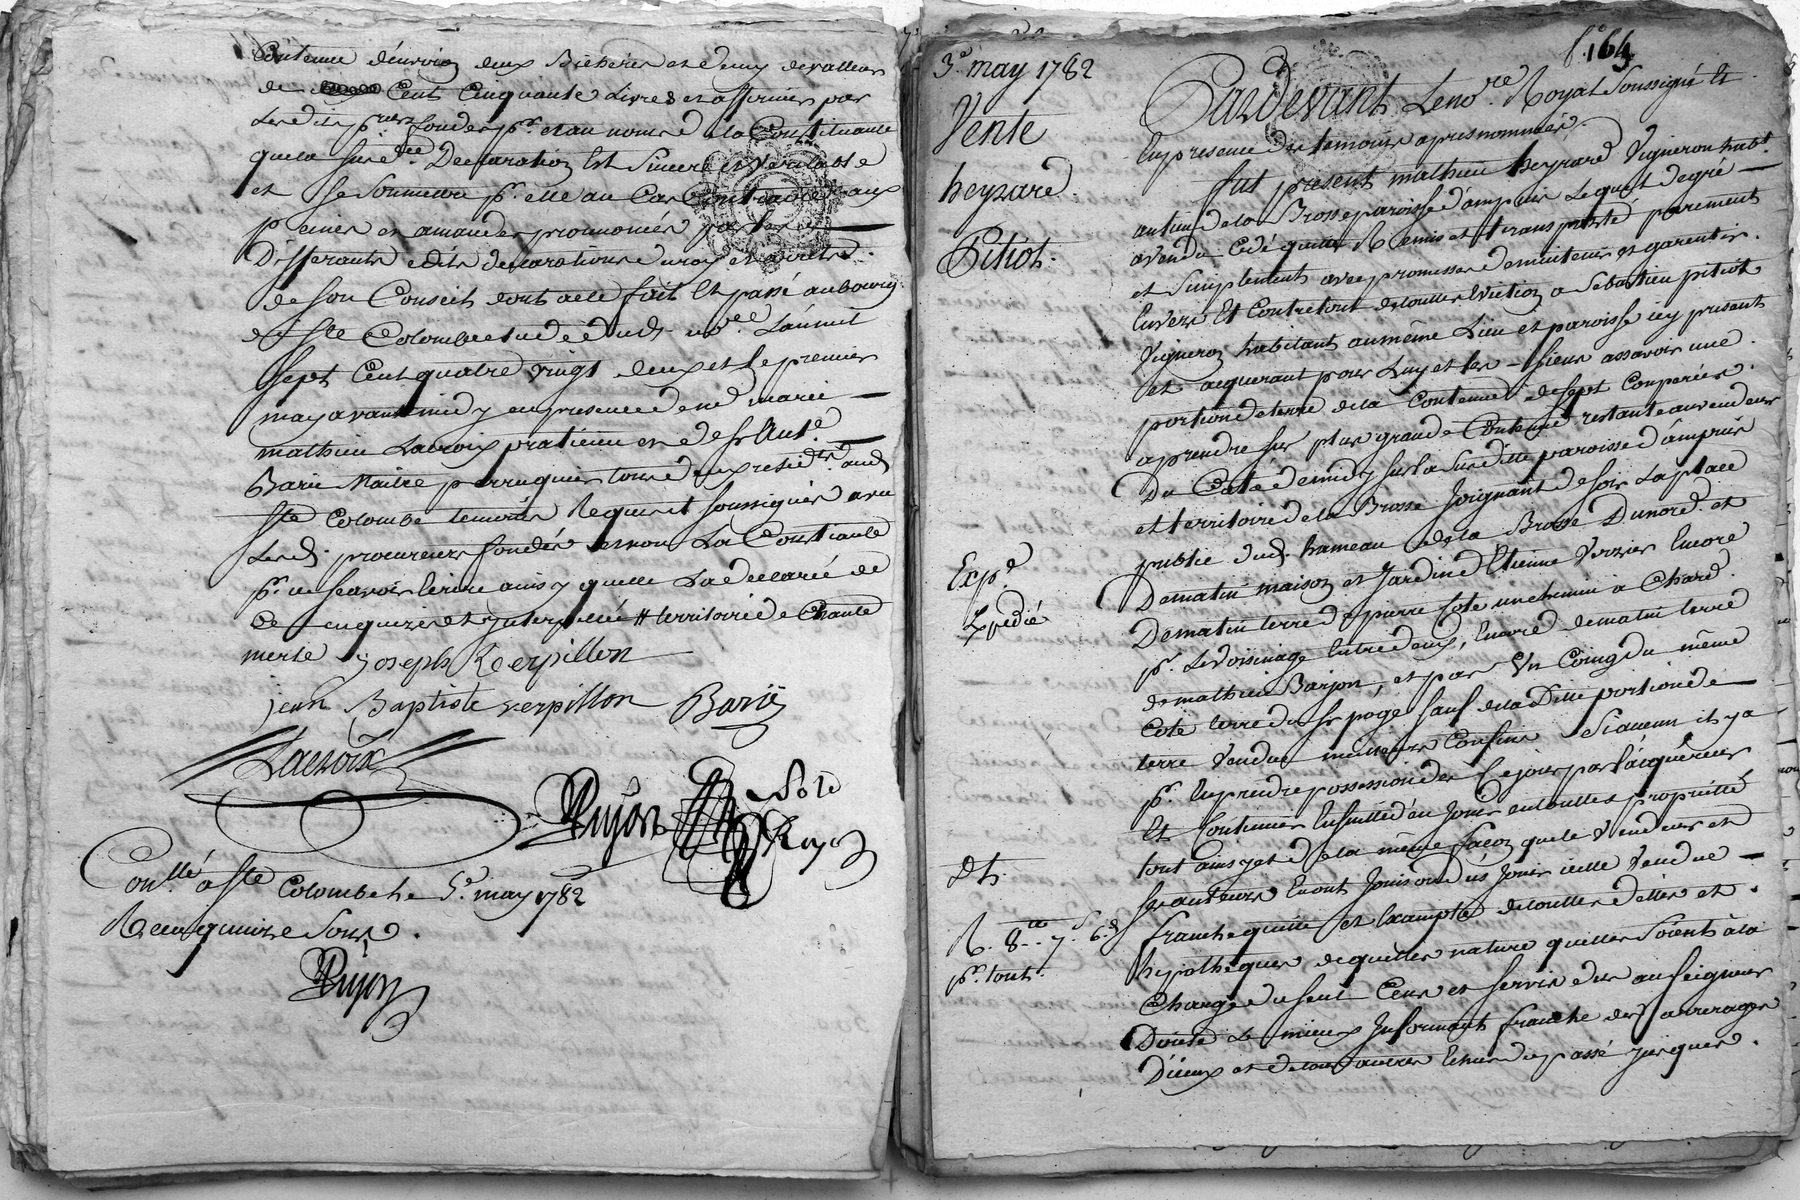 Contenue d'environ deux Bicherées et demy de valleur
de Cent Cinquante Livres et affirmés par
Lesdits prs fondés pr. et au nom de la Constituante
que la susde. Declaration Est Sincere et Veritable
et se Soumettre pr. elle au Cas Contraire aux
peines et amandes prononcées par les
Differants edits declarations du roy et arrets
de son Conseil dont acte fait Et passé au bourg
de Ste Colombe etude dudt. nore. L'an mil
Sept Cent quatre vingt deux et le premier
may avant midy en presence de
mathieu Lacroix praticien et de sr Ante.
Barie Maitre perruquier tous deux residts. audt
Ste Colombe temoins Requis et soussignés avec
Lesdt. procureurs fondés et non La Constituante
pr. ne scavoir ecrire ainsy quelle La declaré de
ce enquise et interpellée # territoire de Chante
merle joseph Verpillon
jean Baptiste verpillon Barie
Lacroix
Dujon nore
Royal
Conllé à Ste Colombe le 5e may 1782
Recu quinze Sous.
Dujon
fo. 164
3e. may 1782
Vente
heyrard
Pitiot.
Expe.
Expedié
dt.
R. 8tt.. 7s. 6d
pr. tout.
Pardevant Le nore. Royal Soussigné Et
En presence des temoins apres nommés.
fut present mathieu heyrard Vigneron habt.
au lieu de la Brosse paroisse d'ampuis Lequel de gré
a vendu Cedé quitté Remis et transporté purement
et Simplement avec promesse de maintenir et garentir
Envers Et Contre tout de toutte Eviction a Sebastien pitiot
Vigneron habitant au même Lieu et paroisse icy present
et acquerant pour Luy et les siens assavoir une
portion de terre de la Contenue de sept Couperées
a prendre sur plus grande Contenue restante au vendeur
Du Coté de midy sur la Susditte paroisse d'ampuis
et territoire de la Brosse Joignant de soir La place
publie dudt. hameau de la Brosse Du nord et
De matin maison et Jardin d'Etienne Verzier Encore
De matin terre de pierre un chemin a Chard.
pr. Le Voisinage Entredeux, Encore de matin terre
de mathieu Barjon, et par Un Coing du même
Coté terre du sr pagé sauf de laditte portion de
terre vendue meilleurs Confins Si aucun il y a
pr. En prendre possession des Ce jour par l'aiquereur
Et Continuer Ensuitte d'en Jouir en toutte propriété
tout ainsy et de la même façon que le Vendeur et
ses auteurs En ont Joui ou dus Jouir icelle Vendue
franche quitte et Exampte de touttes dettes et
hypotheques de quelles nature quelles Soient à la
Charge du seul Cens et servis dus au Seigneur
Direct Le mieux Informant franche des arrerages
D'iceux et de tous autres Echus du passé jusques